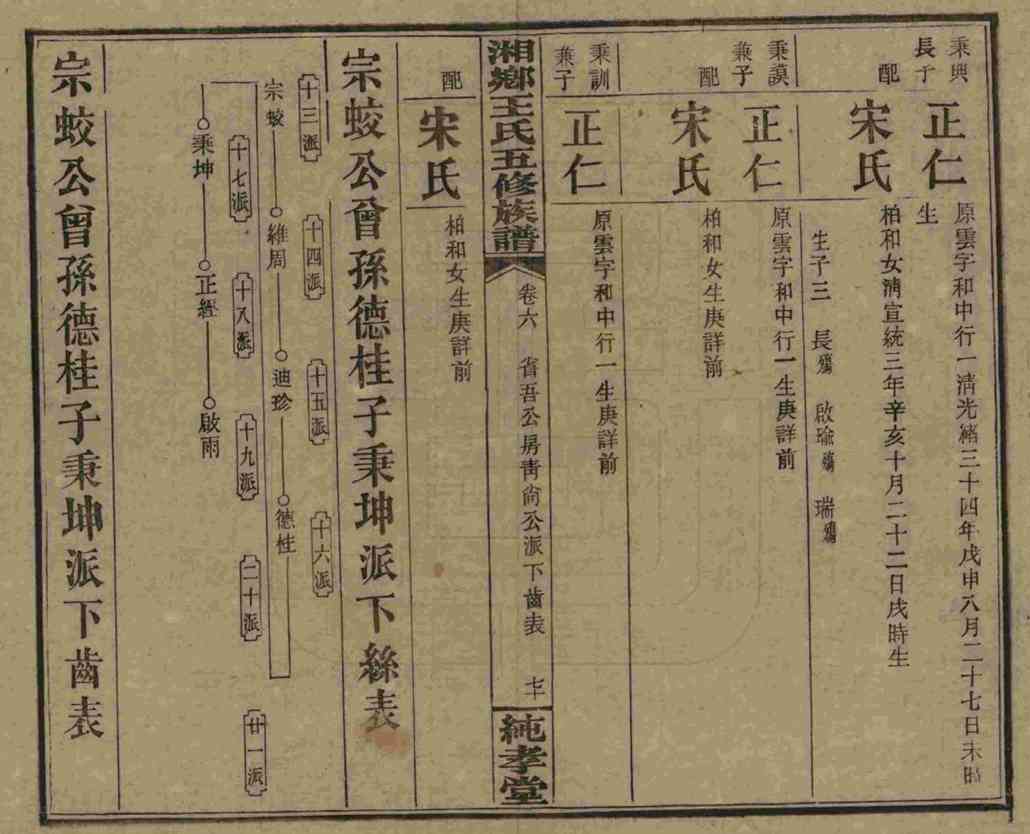 秉興長子
正仁
原雲字和中行一淸光緒三十四年戊申八月二十七日未時
生
配
宋氏
柏和女淸宣統三年辛亥十月二十二日戌時生
生子三 長殤 啟瑜殤 瑞殤
秉謨兼子
正仁
原雲字和中行一生庚詳前
配
宋氏
柏和女生庚詳前
秉訓兼子
正仁
原雲字和中行一生庚詳前
湘鄉王氏五修族譜
卷六 省吾公房靑尙公派下齒表
純孝堂
配
宋氏
柏和女生庚詳前
宗蛟公曾孫德桂子秉坤派下絲表
十三派 十四派 十五派 十六派
宗蛟 維周 迪珍 德桂
十七派 十八派 十九派 二十派 廿一派
秉坤 正經 啟雨
宗蛟公曾孫德桂子秉坤派下齒表